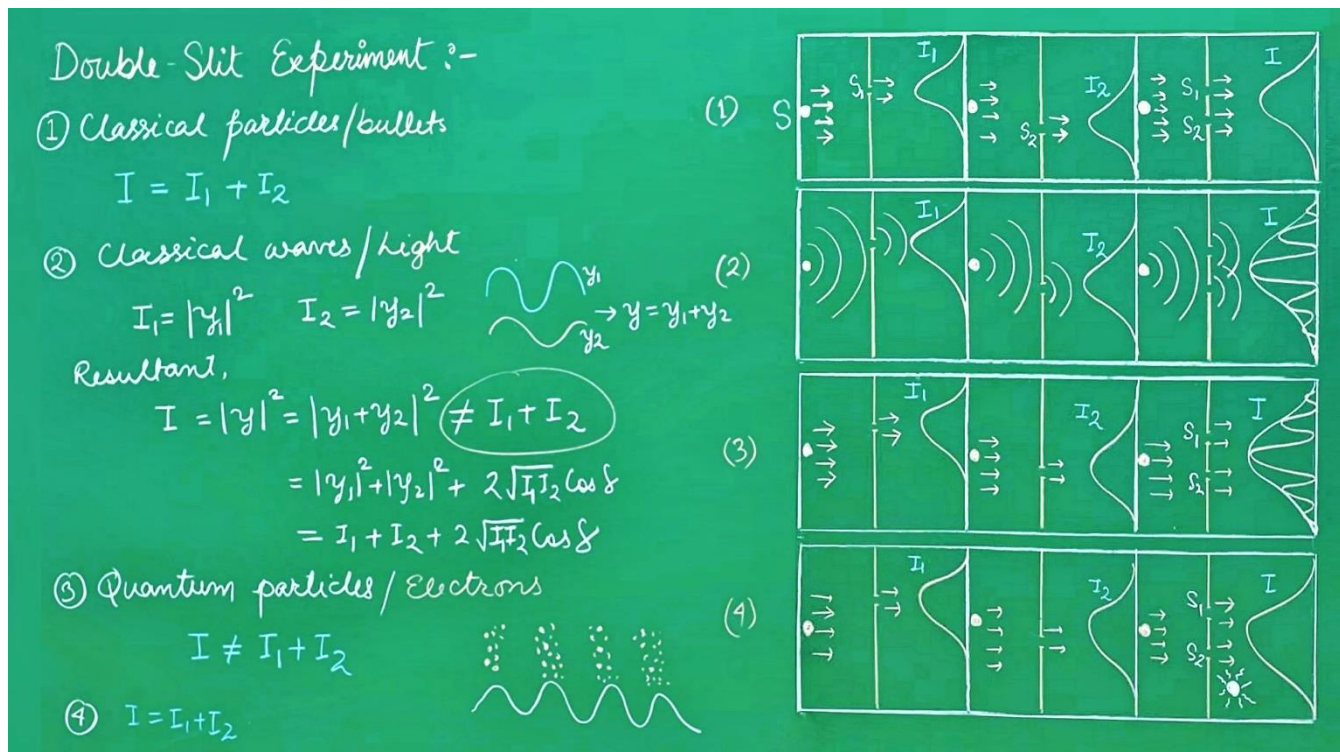 Double-Slit Experiment :-
① Classical particles/bullets
I = I₁ + I₂
② Classical waves/Light
I₁ = |y₁|² I₂ = |y₂|²
y₁
y₂
→ y = y₁+y₂
Resultant,
I = |y|² = |y₁+y₂|² ≠ I₁ + I₂
= |y₁|²+|y₂|² + 2√I₁I₂ Cos δ
= I₁ + I₂ + 2√I₁I₂ Cos δ
③ Quantum particles/Electrons
I ≠ I₁ + I₂
④ I = I₁+I₂
(1) S S₁ I₁ S₂ I₂ S₁ S₂ I
(2) I₁ I₂ I
(3) I₁ I₂ S₁ S₂ I
(4) I₁ I₂ S₁ S₂ I